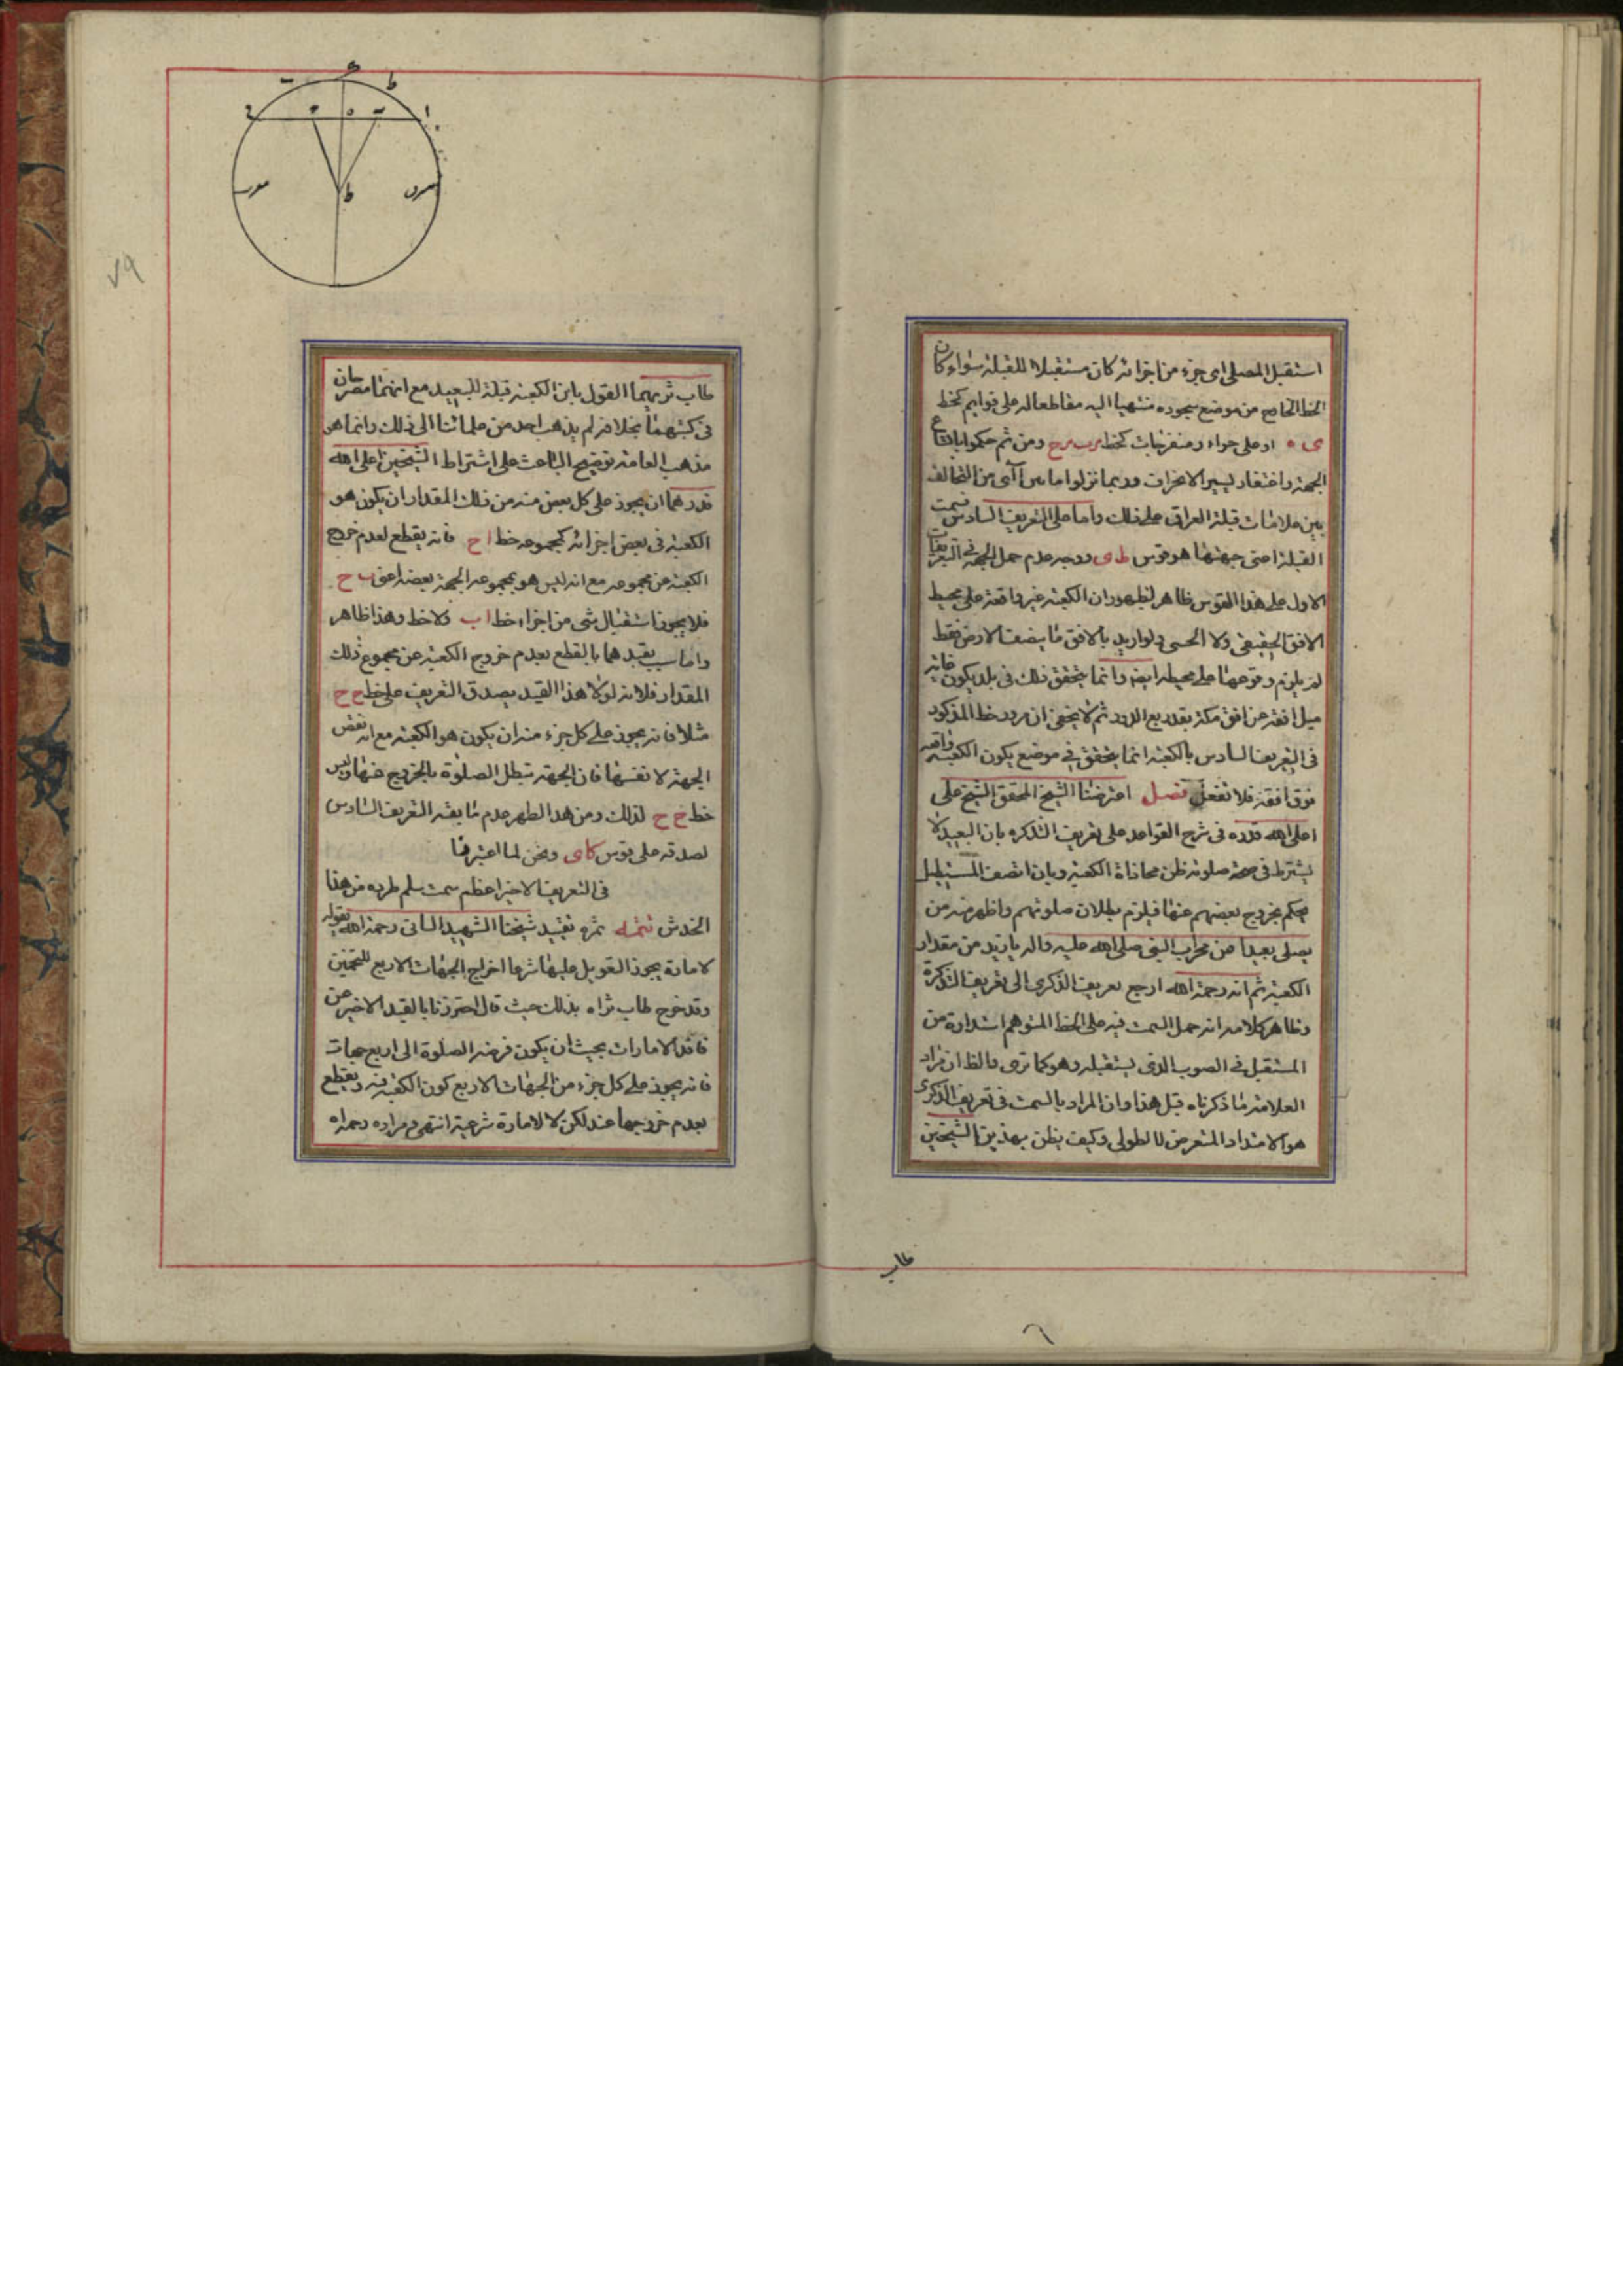 استقبل المصلى اى جزء من اجزائه كان مستقبلا للقبلة سواء كان
الخط الخارج من موضع سجوده منتهيا اليه مقاطعا له على قوايم كخط
ى ه او على حواد ومنفرجات كخط ومن ثم حكموا باتساع
الجهة واغتفار يسير الانحراف وربما نزلوا ما من التخالف
بين علامات قبلة العراق على ذلك واما على التعريف السادس فسمت
القبلة اعنى جهتها هو قوس ط ى ووجه عدم حمل الجهة فى التعريفات
الاول على هذا القوس ظاهر لظهور ان الكعبة غير واقعة على محيط
الافق الحقيقى ولا الحسى ولو اريد بالافق ما ينصف الارض فقط
لم يلزم وقوعها على محيطه ايضا وانما يتحقق ذلك فى بلد يكون فانه
ميل افقه عن افق مكة بقدر ربع الدور ثم لا يخفى ان مرور خط المذكور
فى التعريف السادس بالكعبة انما يتحقق فى موضع يكون الكعبة واقعة
فوق افقه فلا تغفل فصل اعترض الشيخ المحقق الشيخ على
اعلى الله قدره فى شرح القواعد على تعريف التذكره بان البعيد لا
يشترط فى صحة صلوته ظن محاذاة الكعبة وبان الصف المستطيل
يحكم بخروج بعضهم عنها فيلزم بطلان صلوتهم واظهر منه من
يصلى بعيدا عن محراب النبى صلى الله عليه واله بازيد من مقدار
الكعبة ثم انه رحمة الله ارجع تعريف الذكرى الى تعريف التذكرة
وظاهر كلامه انه حمل السمت فيه على الخط المتوهم امتداده من
المستقبل فى الصوب الذى يستقبله وهو كما ترى والظ ان مراد
العلامة ما ذكرناه قبل هذا وان المراد بالسمت فى تعريف الذكرى
هو الامتداد المتعرض لا الطولى وكيف يظن بهذين الشيخين
طاب
طاب ثريهما القول بان الكعبة قبلة للبعيد مع انهما مصرحان
فى كتبهما بخلافه لم يذهب احد من علمائنا الى ذلك وانما هو
مذهب العامة توضيح الباعث على اشتراط الشيخين اعلى الله
قدرهما ان يجوز على كل بعض منه من ذلك المقدار ان يكون هو
الكعبة فى بعض اجزائه كمجموعه خط ا ح فانه يقطع لعدم خروج
الكعبة عن مجموعه مع انه ليس هو بمجموعه الجهة بعضه اعنى ب ح
فلا يجوز استقبال شى من اجزاء خط ا ب ولا خط وهذا ظاهر
واما سبب تقيدهما بالقطع بعدم خروج الكعبة عن مجموع ذلك
المقدار فلانه لولا هذا القيد يصدق التعريف على خط ح ح
مثلا فانه يجوز على كل جزء منه ان يكون هو الكعبة مع انه بعض
الجهة لا نفسها فان الجهة تبطل الصلوة بالخروج عنها وليس
خط ح ح لذلك ومن هذا يظهر عدم مايقه التعريف السادس
لصدقه على قوس كاى ونحن لما اعتبرنا
فى التعريف الاخير اعظم سمت سلم طرده من هذا
الخدش تتمه ثمره تقييد شيخنا الشهيد الثانى رحمة الله بقوله
لامارة يجوز التعويل عليها شرعا اخراج الجهات الاربع للمتحيرين
وقد صرح طاب ثراه بذلك حيث قال احترزنا بالقيد الاخير عن
فاقد الامارات بحيث ان يكون فرضه الصلوة الى اربع جهات
فانه يجوز على كل جزء من الجهات الاربع كون الكعبة فيه ويقطع
بعدم خروجها عنه لكن لا لامارة شرعية انتهى ومراده رحمه الله